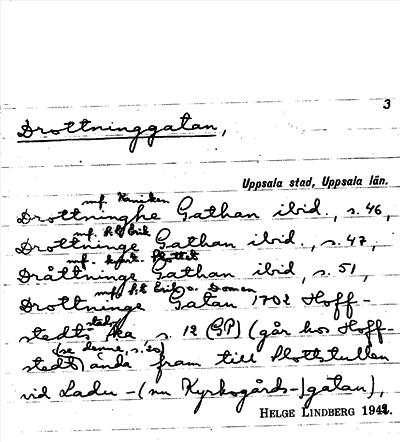 3
Drottninggatan,
Uppsala stad, Uppsala län.
mf. Kaniken
Drottninghe Gathan ibid., s. 46,
mf. S:t Erik
Drottninge Gathan ibid., s. 47,
mf. Slottet
Dråttninge Gathan ibid, s. 51,
mf. S:t Erik o. Domen
Drottninge Gatan 1702 Hoff-
stedts ka s. 12 (GP) (går hos Hoff-
(se denne, s. 20)
stedt) ända fram till Slottstullen
vid Ladu- (nu Kyrkogårds-)gatan),
HELGE LINDBERG 1942.